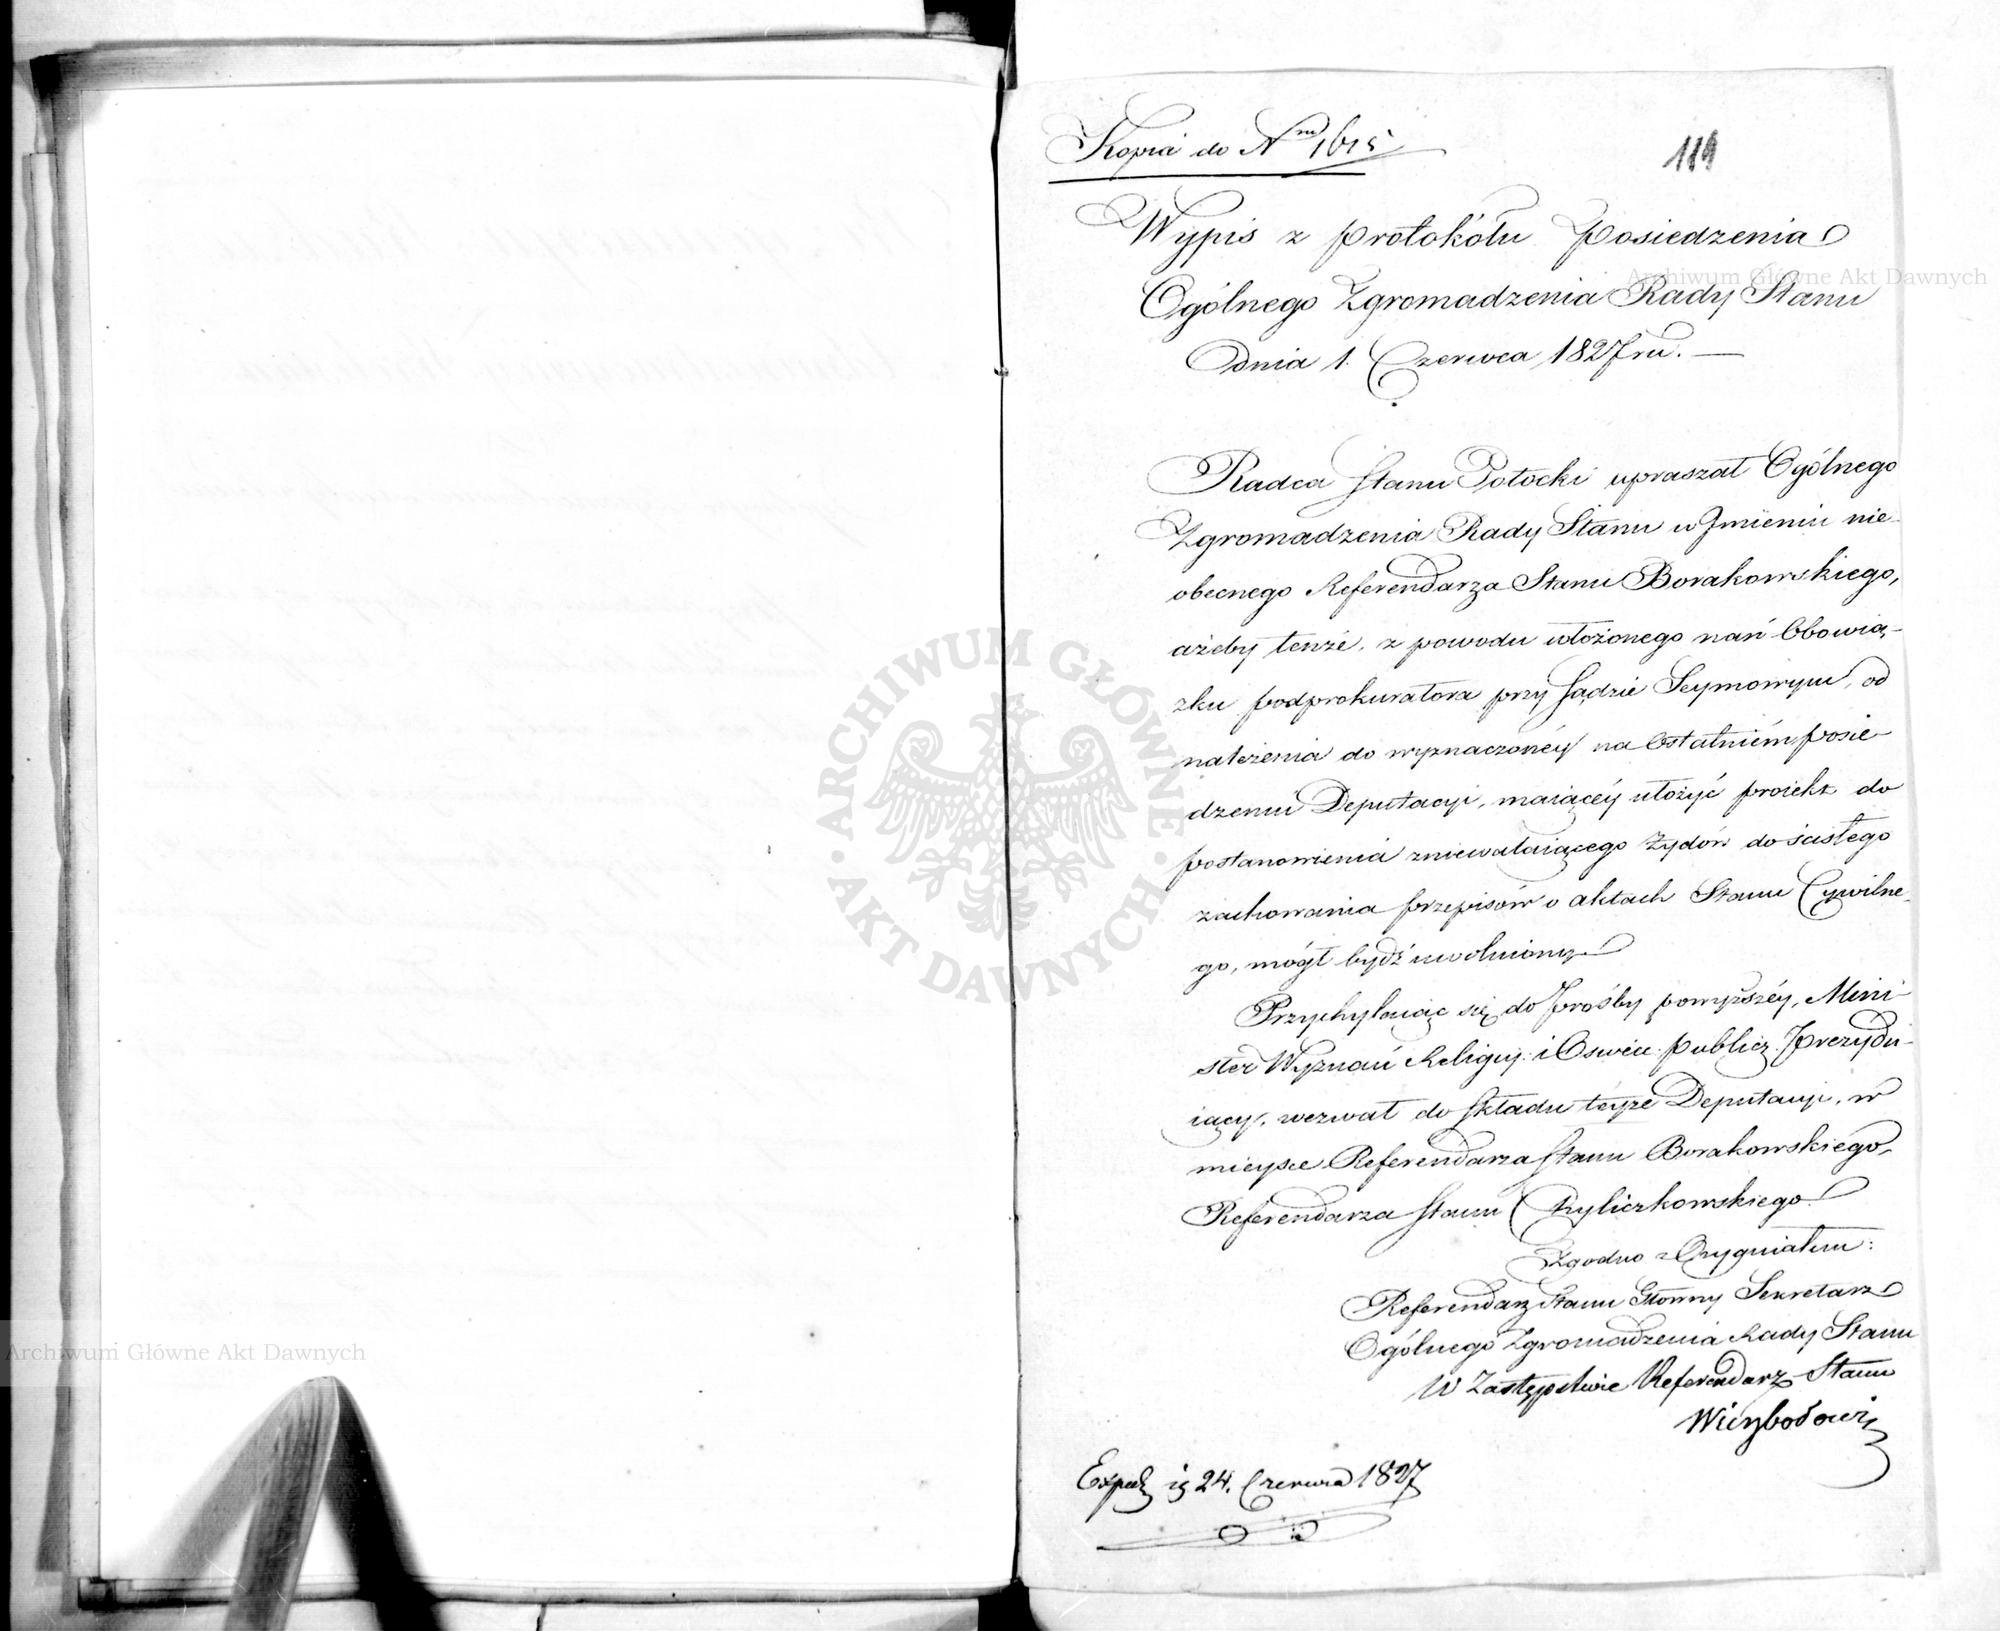 Kopia do Nru 1615
119
Wypis z Protokółu Posiedzenia
Ogólnego Zgromadzenia Rady Stanu
Dnia 1. Czerwca 1827 ru. —
Radca Stanu Potocki upraszał Ogólnego
Zgromadzenia Rady Stanu w Jmieniu nie-
obecnego Referendarza Stanu Borakowskiego,
ażeby tenże, z powodu włożonego nań Obowią-
zku podprokuratora przy Sądzie Seymowym, od
należenia do wyznaczonéy na Ostatniém posie-
dzeniu Deputacyi, maiącéy ułożyć proiekt do
postanowienia zniewalaiącego Żydów do ścisłego
zachowania przepisów o aktach Stanu Cywilne-
go, mógł bydź uwolniony.
Przychylaiąc się do Prośby powyższéy, Mini-
ster Wyznań Religiy: i Oswiec: Publicz: Prezydu-
iący, wezwał do Składu teyże Deputacyi, w
mieysce Referendarza Stanu Borakowskiego,
Referendarza Stanu Kyliczkowskiego.
Zgodno z Oryginałem:
Referendarz Stanu Główny Sekretarz
Ogólnego Zgromadzenia Rady Stanu
W Zastępstwie Referendarz Stanu
Exped: 24. Czerwca 1827
Archiwum Główne Akt Dawnych
Archiwum Główne Akt Dawnych
ARCHIWUM GŁÓWNE · AKT DAWNYCH ·